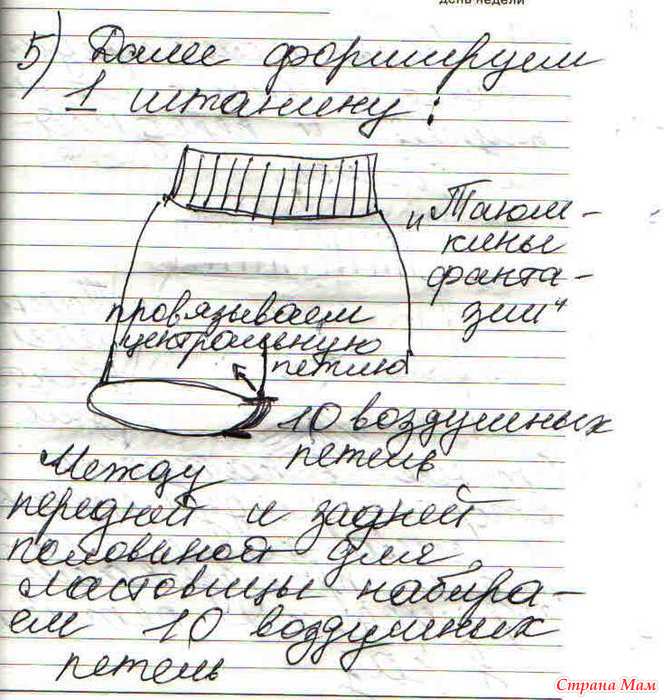 день недели
5) Далее формируем
1 штанину:
„Таюм-
кины
фанта-
зии“
провязываем
центральную
петлю
10 воздушных
петель
Между
передней и задней
половиной для
ластовицы набира-
ем 10 воздушных
петель
Страна Мам